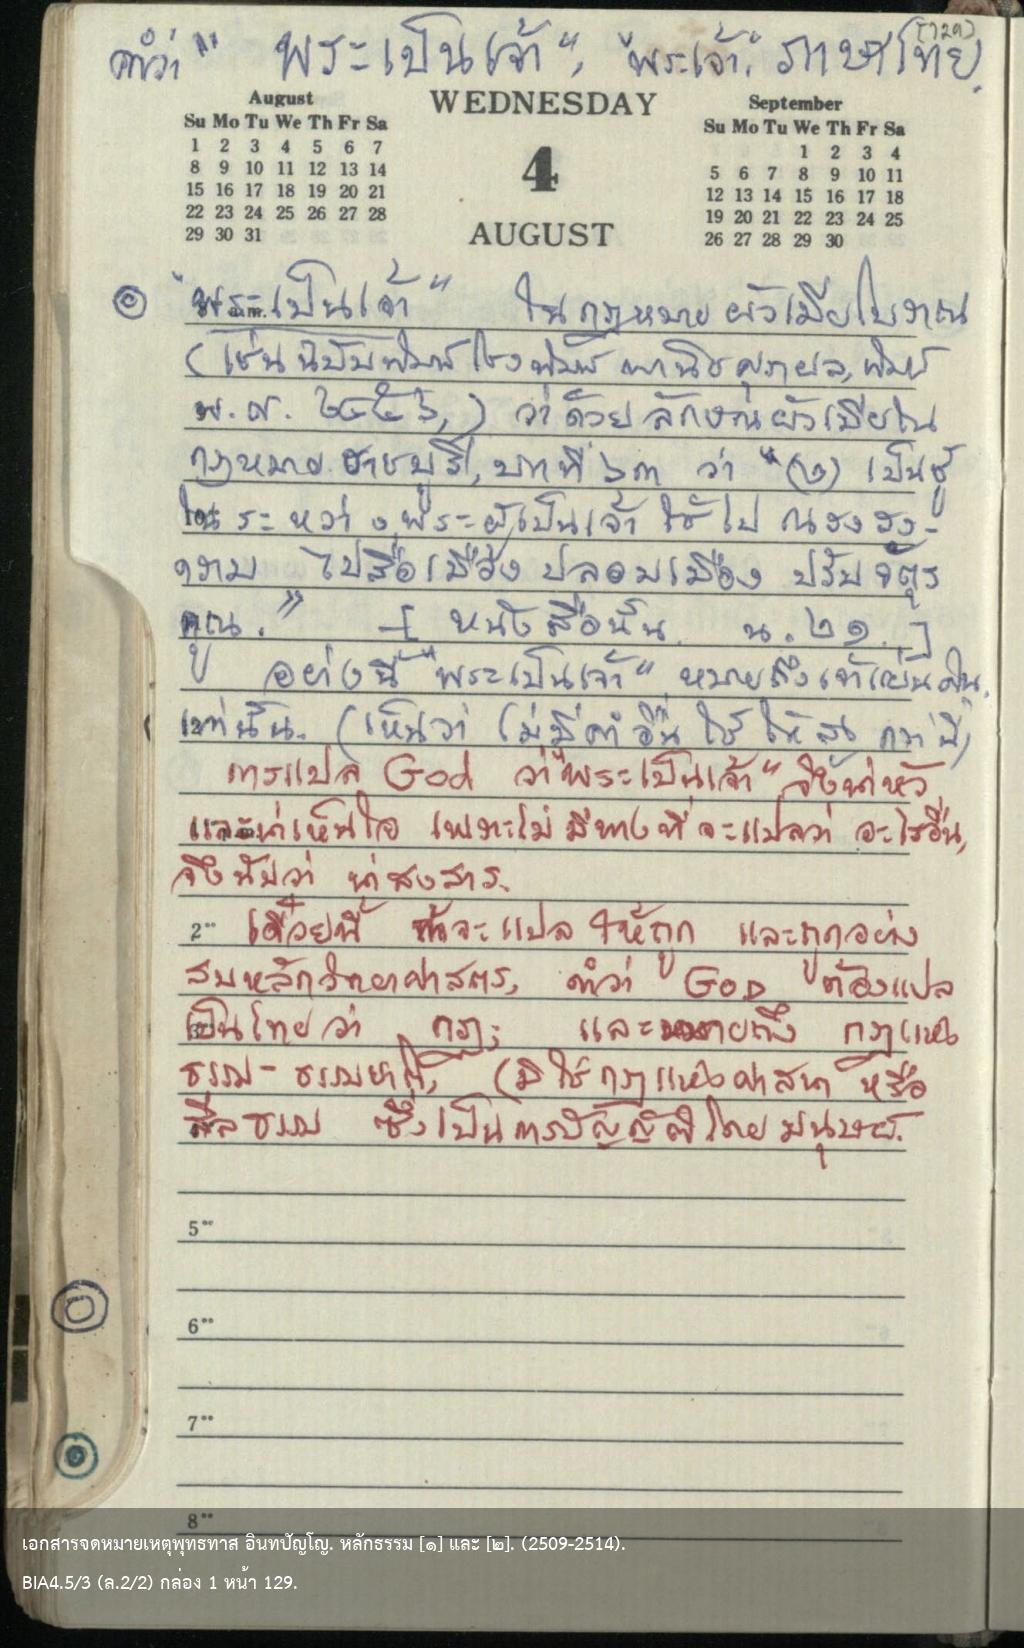 (129)
คำว่า "พระเป็นเจ้า", "พระเจ้า", ภาษาไทย.
August WEDNESDAY September
Su Mo Tu We Th Fr Sa Su Mo Tu We Th Fr Sa
1 2 3 4 5 6 7 1 2 3 4
8 9 10 11 12 13 14 4 5 6 7 8 9 10 11
15 16 17 18 19 20 21 12 13 14 15 16 17 18
22 23 24 25 26 27 28 AUGUST 19 20 21 22 23 24 25
29 30 31 26 27 28 29 30
๏ "พระเป็นเจ้า" ในกฎหมายผัวเมียโบราณ
(เช่นฉบับพิมพ์โรงพิมพ์พานิชศุภผล, พิมพ์
พ.ศ. ๒๔๕๖,) ว่าด้วยลักษณผัวเมียใน
กฎหมายราชบุรี, บทที่ ๖๓ ว่า "(๒) เป็นชู้
ในระหว่างพระเป็นเจ้าใช้ไปณรงสง-
คราม ไปสื่อเมือง ปลอมเมือง ปรับจัตุร
คูณ." [หนังสือนั้น น. ๒๑.]
อย่างนี้ "พระเป็นเจ้า" หมายถึงเจ้าแผ่นดิน,
เท่านั้น. (เห็นว่า ไม่มีคำอื่นใช้ให้ดี กว่านี้)
การแปล God ว่า "พระเป็นเจ้า" จึงน่าหัว
และน่าเห็นใจ เพราะไม่มีทางที่จะแปลว่าอะไรอื่น,
จึงนับว่า น่าสงสาร.
2 เดี๋ยวนี้ ถ้าจะแปลให้ถูก และถูกอย่าง
สมหลักวิทยาศาสตร์, คำว่า God ต้องแปล
เป็นไทยว่า กฎ; และหมายถึง กฎแห่ง
ธรรม-ธรรมชาติ, (มิใช่กฎแห่งศาสนา หรือ
ศีลธรรม ซึ่งเป็นการบัญญัติโดยมนุษย์.
5
6
7
8
เอกสารจดหมายเหตุพุทธทาส อินทปัญโญ. หลักธรรม [๑] และ [๒]. (2509-2514).
BIA4.5/3 (ล.2/2) กล่อง 1 หน้า 129.